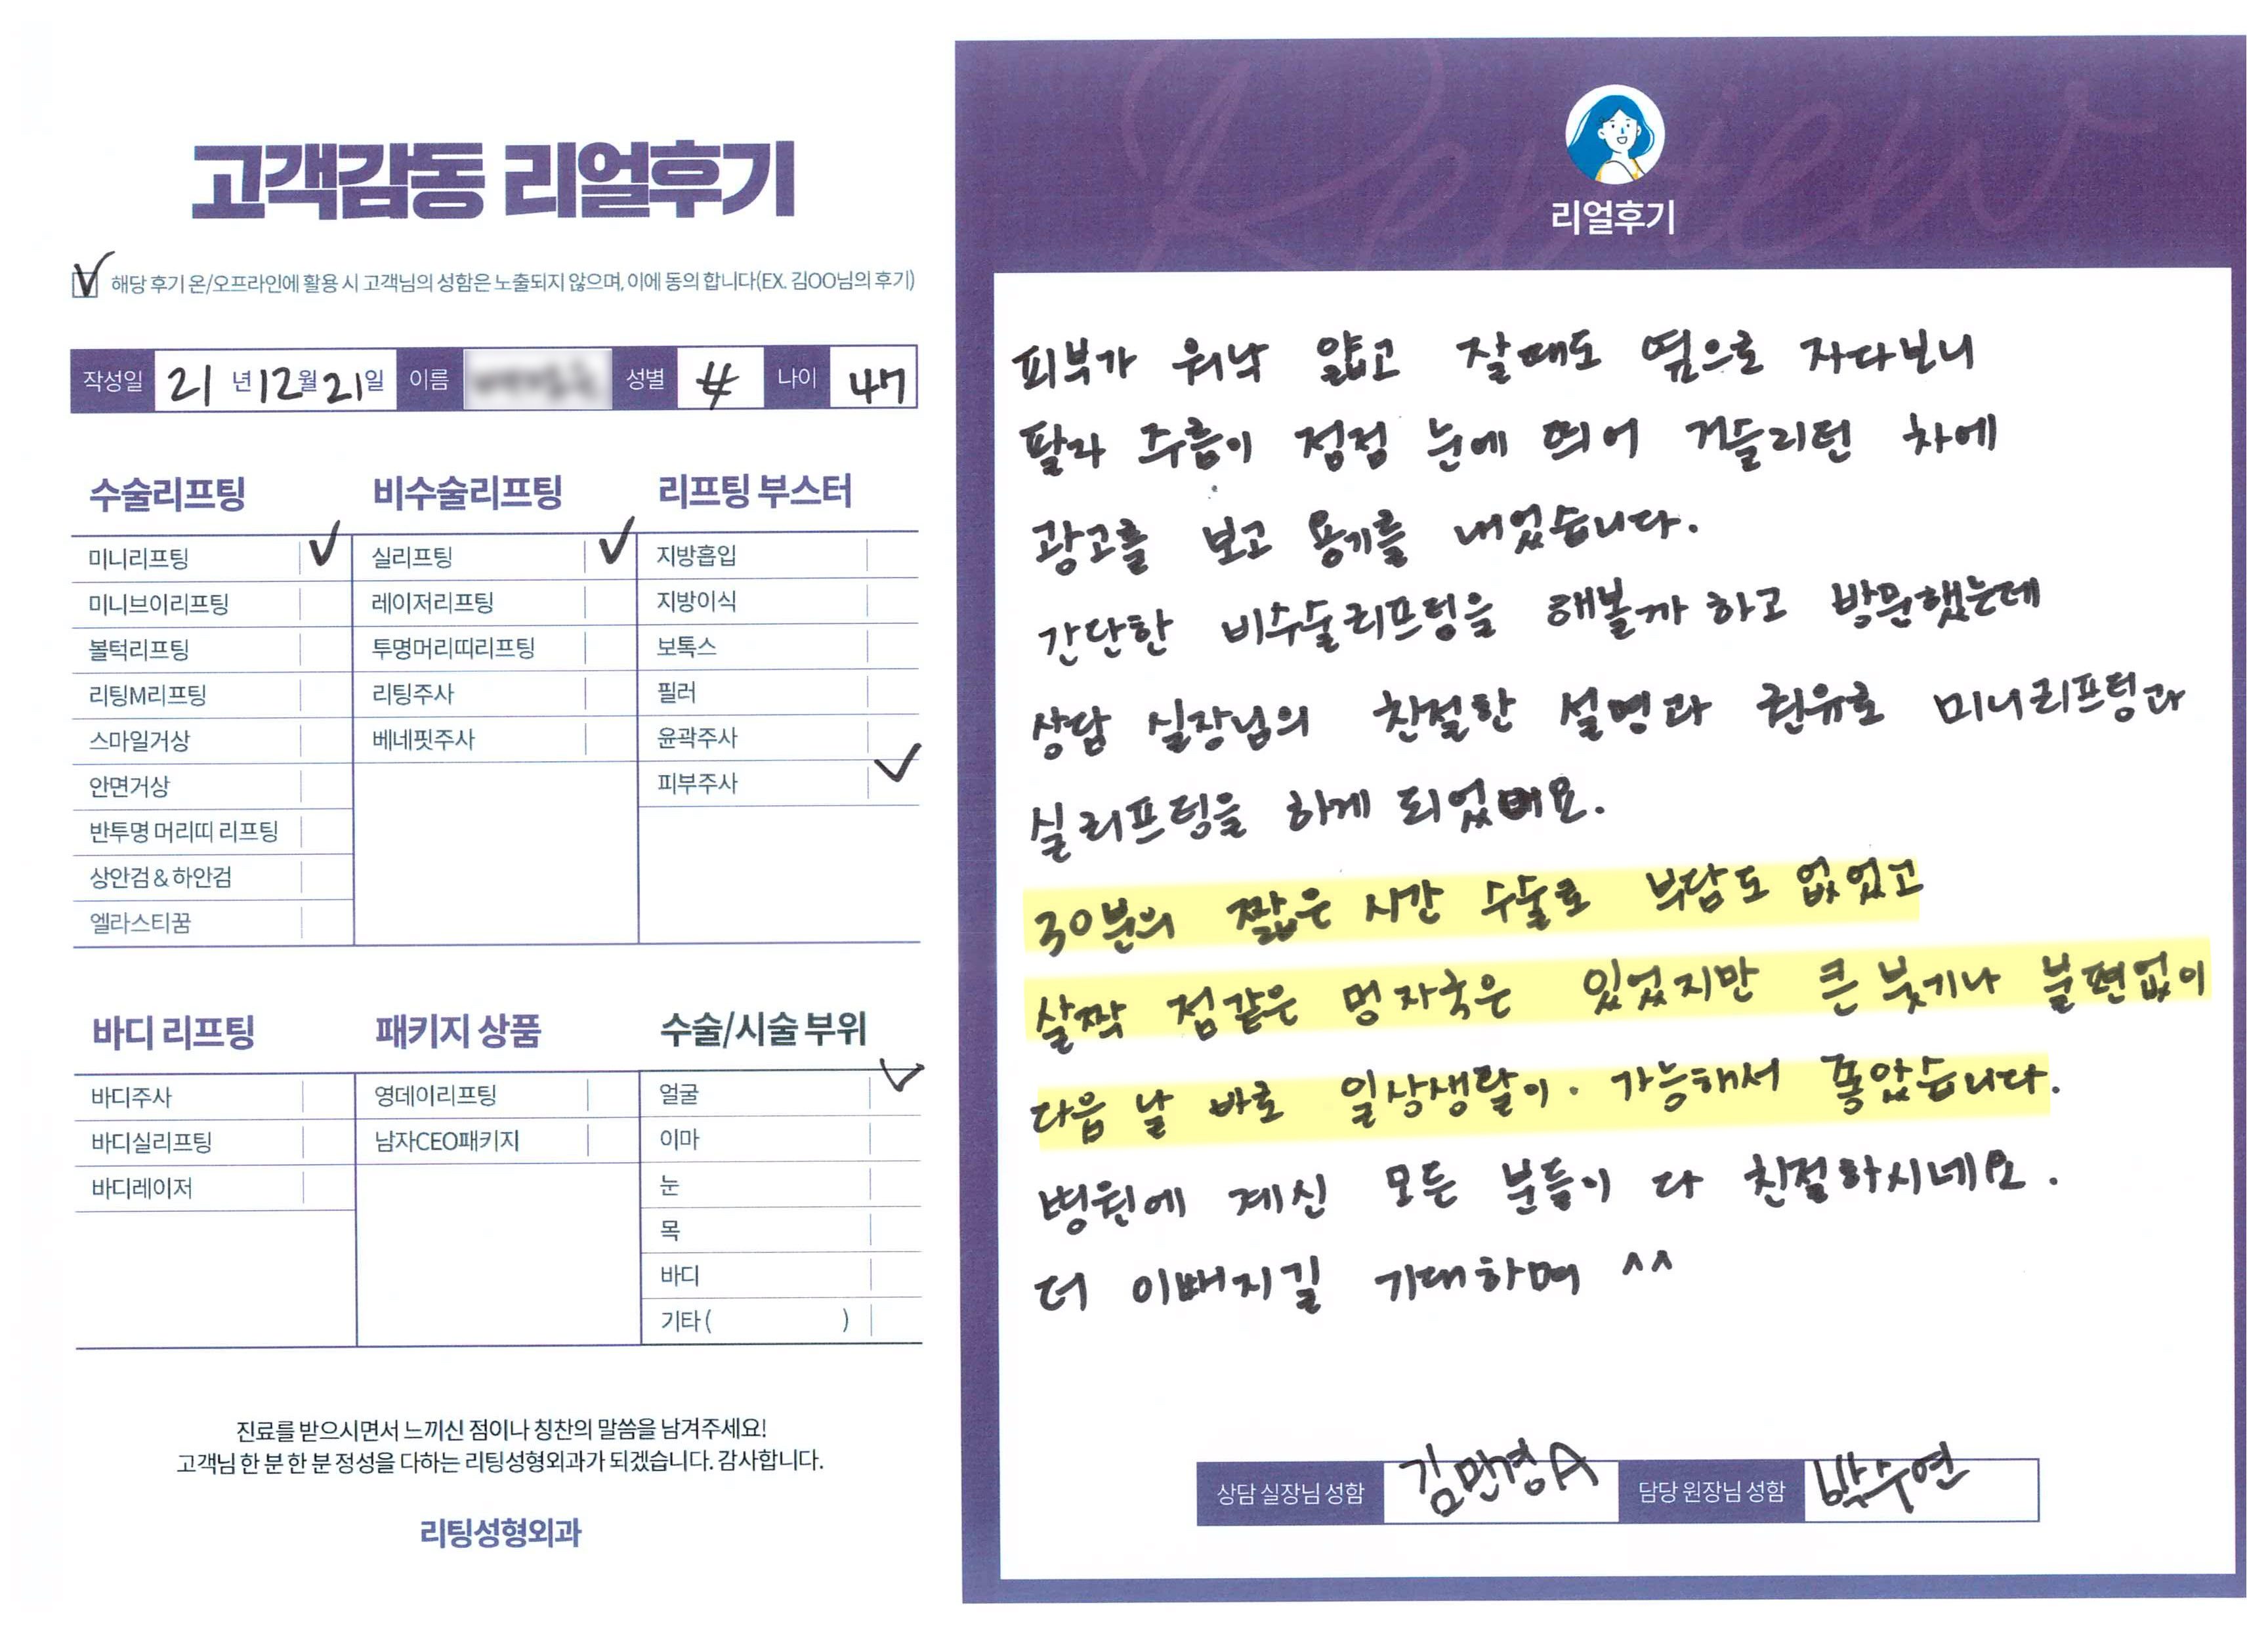 고객감동 리얼후기
해당 후기 온/오프라인에 활용 시 고객님의 성함은 노출되지 않으며, 이에 동의 합니다(EX. 김OO님의 후기)
작성일 21 년 12 월 21 일 이름 성별 女 나이 47
수술리프팅
미니리프팅
미니브이리프팅
볼턱리프팅
리팅M리프팅
스마일거상
안면거상
반투명 머리띠 리프팅
상안검 & 하안검
엘라스티꿈
비수술리프팅
실리프팅
레이저리프팅
투명머리띠리프팅
리팅주사
베네핏주사
리프팅 부스터
지방흡입
지방이식
보톡스
필러
윤곽주사
피부주사
바디 리프팅
바디주사
바디실리프팅
바디레이저
패키지 상품
영데이리프팅
남자CEO패키지
수술/시술 부위
얼굴
이마
눈
목
바디
기타 ( )
진료를 받으시면서 느끼신 점이나 칭찬의 말씀을 남겨주세요!
고객님 한 분 한 분 정성을 다하는 리팅성형외과가 되겠습니다. 감사합니다.
리팅성형외과
Review
리얼후기
피부가 워낙 얇고 잘때도 옆으로 자다보니
팔자 주름이 점점 눈에 띄어 거들리던 차에
광고를 보고 용기를 내었습니다.
간단한 비수술리프팅을 해볼까 하고 방문했는데
상담 실장님의 친절한 설명과 권유로 미니리프팅과
실리프팅을 하게 되었어요.
30분의 짧은 시간 수술로 부담도 없었고
살짝 점같은 멍자국은 있었지만 큰 붓기나 불편없이
다음 날 바로 일상생활이 가능해서 좋았습니다.
병원에 계신 모든 분들이 다 친절하시네요.
더 이뻐지길 기대하며 ^^
상담 실장님 성함 김민경A 담당 원장님 성함 박수연